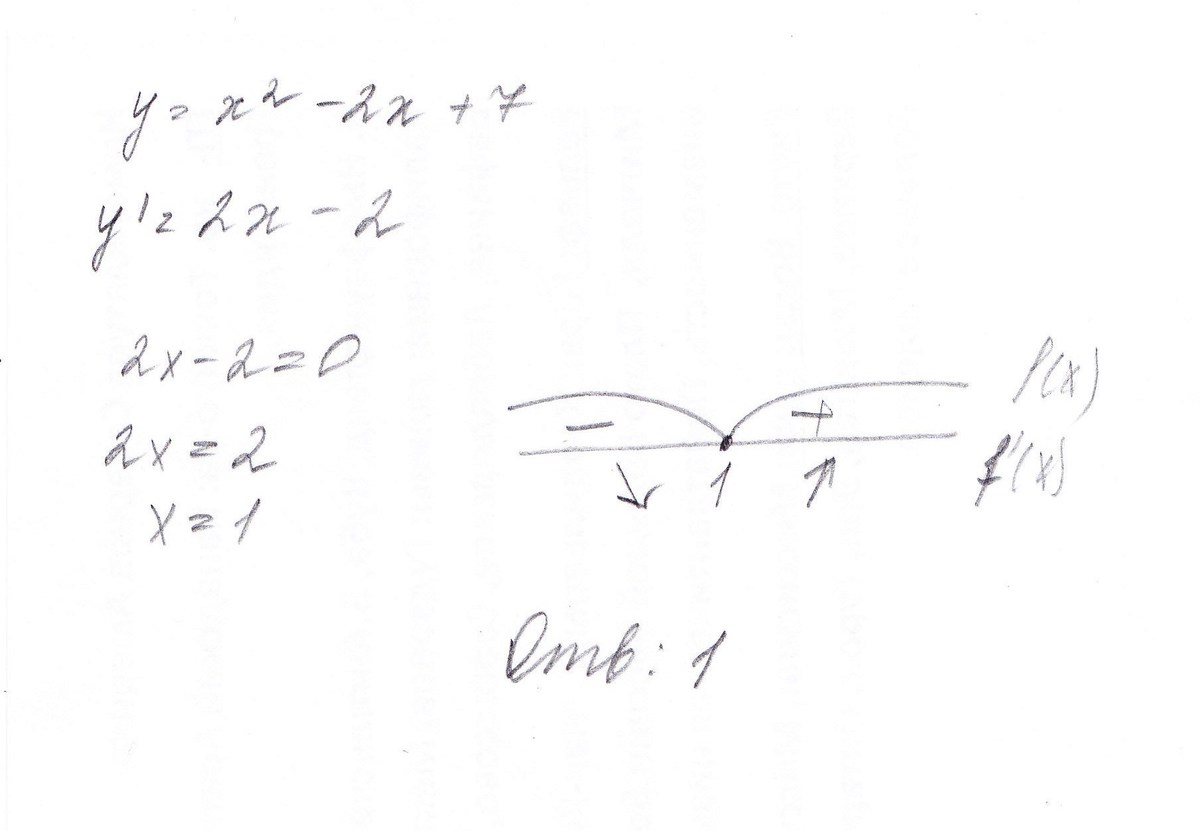 y = x² - 2x + 7
y' = 2x - 2
2x - 2 = 0
2x = 2
x = 1
f(x)
- +
1
f'(x)
Отв: 1